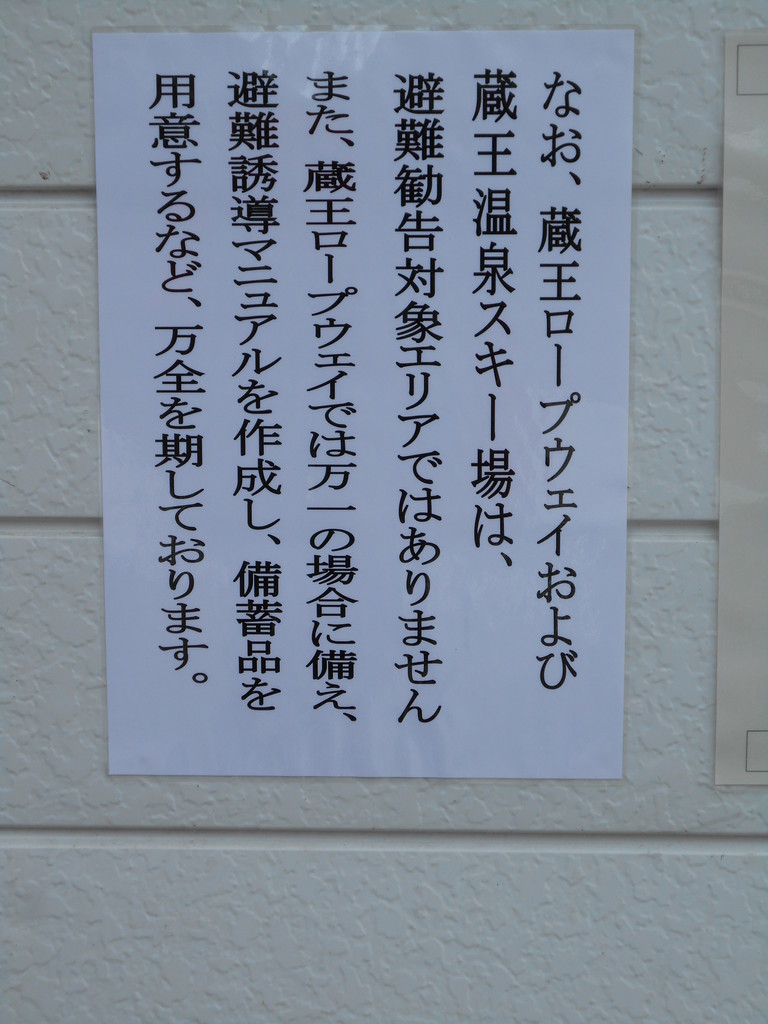 なお、蔵王ロープウェイおよび
蔵王温泉スキー場は、
避難勧告対象エリアではありません
また、蔵王ロープウェイでは万一の場合に備え、
避難誘導マニュアルを作成し、備蓄品を
用意するなど、万全を期しております。